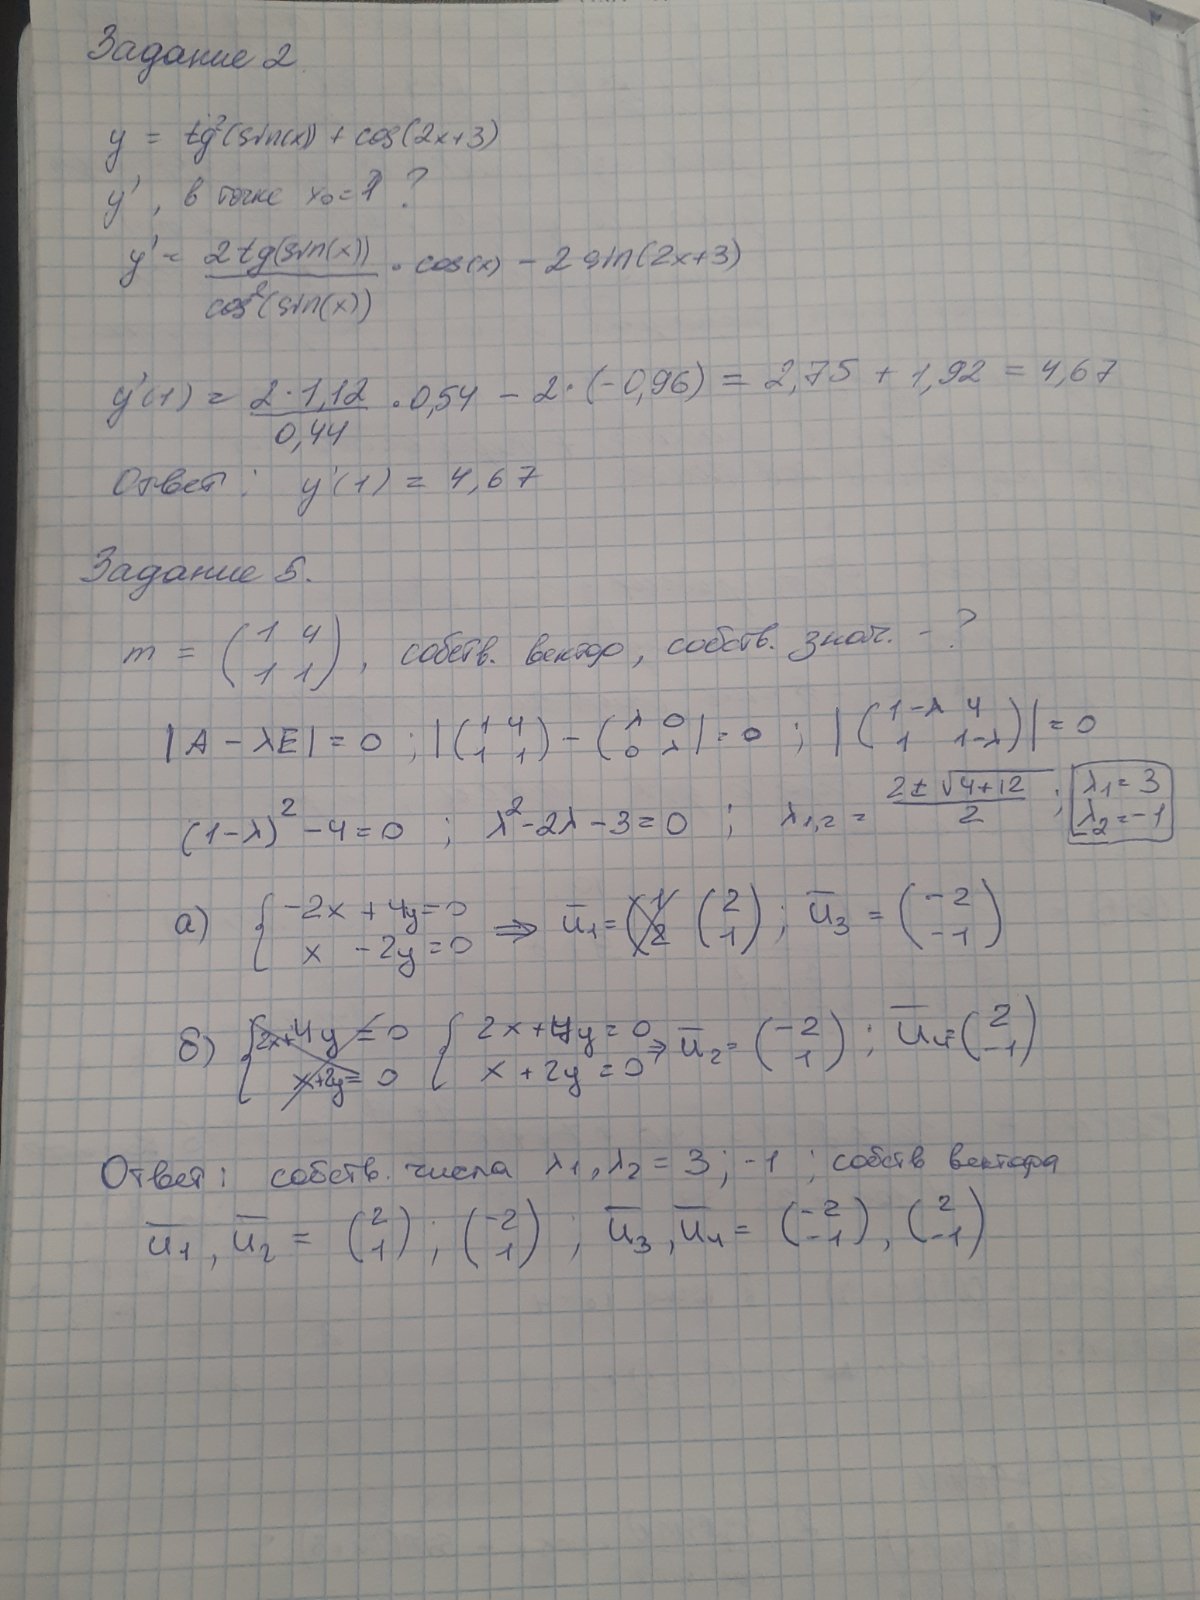 Задание 2.
y = tg²(sin(x)) + cos(2x+3)
y', в точке x₀=1 ?
y' = 2tg(sin(x)) / cos²(sin(x)) · cos(x) - 2 sin(2x+3)
y'(1) = 2·1,12 / 0,44 · 0,54 - 2·(-0,96) = 2,75 + 1,92 = 4,67
Ответ: y'(1) = 4,67
Задание 5.
m = (1 4 / 1 1), собств. вектор, собств. знач. - ?
|A - λE| = 0 ; |(1 4 / 1 1) - (λ 0 / 0 λ)| = 0 ; |(1-λ 4 / 1 1-λ)| = 0
(1-λ)² - 4 = 0 ; λ² - 2λ - 3 = 0 ; λ₁,₂ = 2 ± √4+12 / 2 ; λ₁ = 3 λ₂ = -1
а) { -2x + 4y = 0 x - 2y = 0 ⇒ u̅₁ = (2 / 1) ; u̅₃ = (-2 / -1)
б) { 2x+4y = 0 x+2y = 0 { 2x + 4y = 0 x + 2y = 0 ⇒ u̅₂ = (-2 / 1) ; u̅₄ = (2 / -1)
Ответ: собств. числа λ₁, λ₂ = 3 ; -1 ; собств вектора
u̅₁, u̅₂ = (2 / 1) ; (-2 / 1) ; u̅₃, u̅₄ = (-2 / -1), (2 / -1)